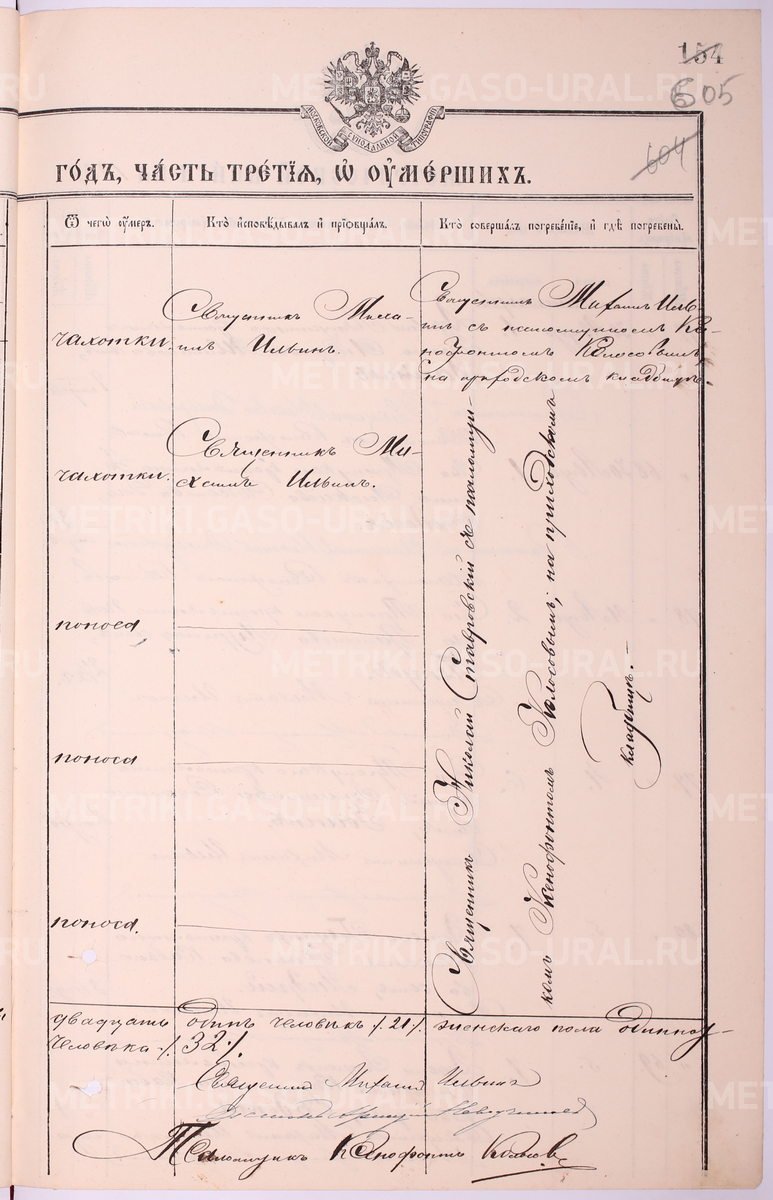 154
605
604
МОСКОВСКОЙ СѴНОДАЛЬНОЙ ТИПОГРАФІИ
ГОДЪ, ЧАСТЬ ТРЕТІЯ, Ѿ ОУМЕРШИХЪ.
Ѿ чегѡ оумеръ.
Кто исповѣдывалъ и пріобщалъ.
Кто совершалъ погребеніе, и гдѣ погребены.
чахотки.
Священникъ Миха-
илъ Ильинъ.
Священникъ Михаилъ Иль-
инъ съ псаломщикомъ Ксе-
нофонтомъ Колосовымъ,
на городскомъ кладбищѣ.
чахотки.
Священникъ Ми-
хаилъ Ильинъ.
поноса
поноса
поноса.
Священникъ Николай Ставровскій съ псаломщи-
комъ Ксенофонтомъ Колосовымъ, на приходскомъ
кладбищѣ.
двадцать одинъ человѣкъ /. 21 /. женскаго пола одинна-
человѣка /. 32 /.
Священникъ Михаилъ Ильинъ
Псаломщикъ Ксенофонтъ Колосовъ
METRIKI.GASO-URAL.RU